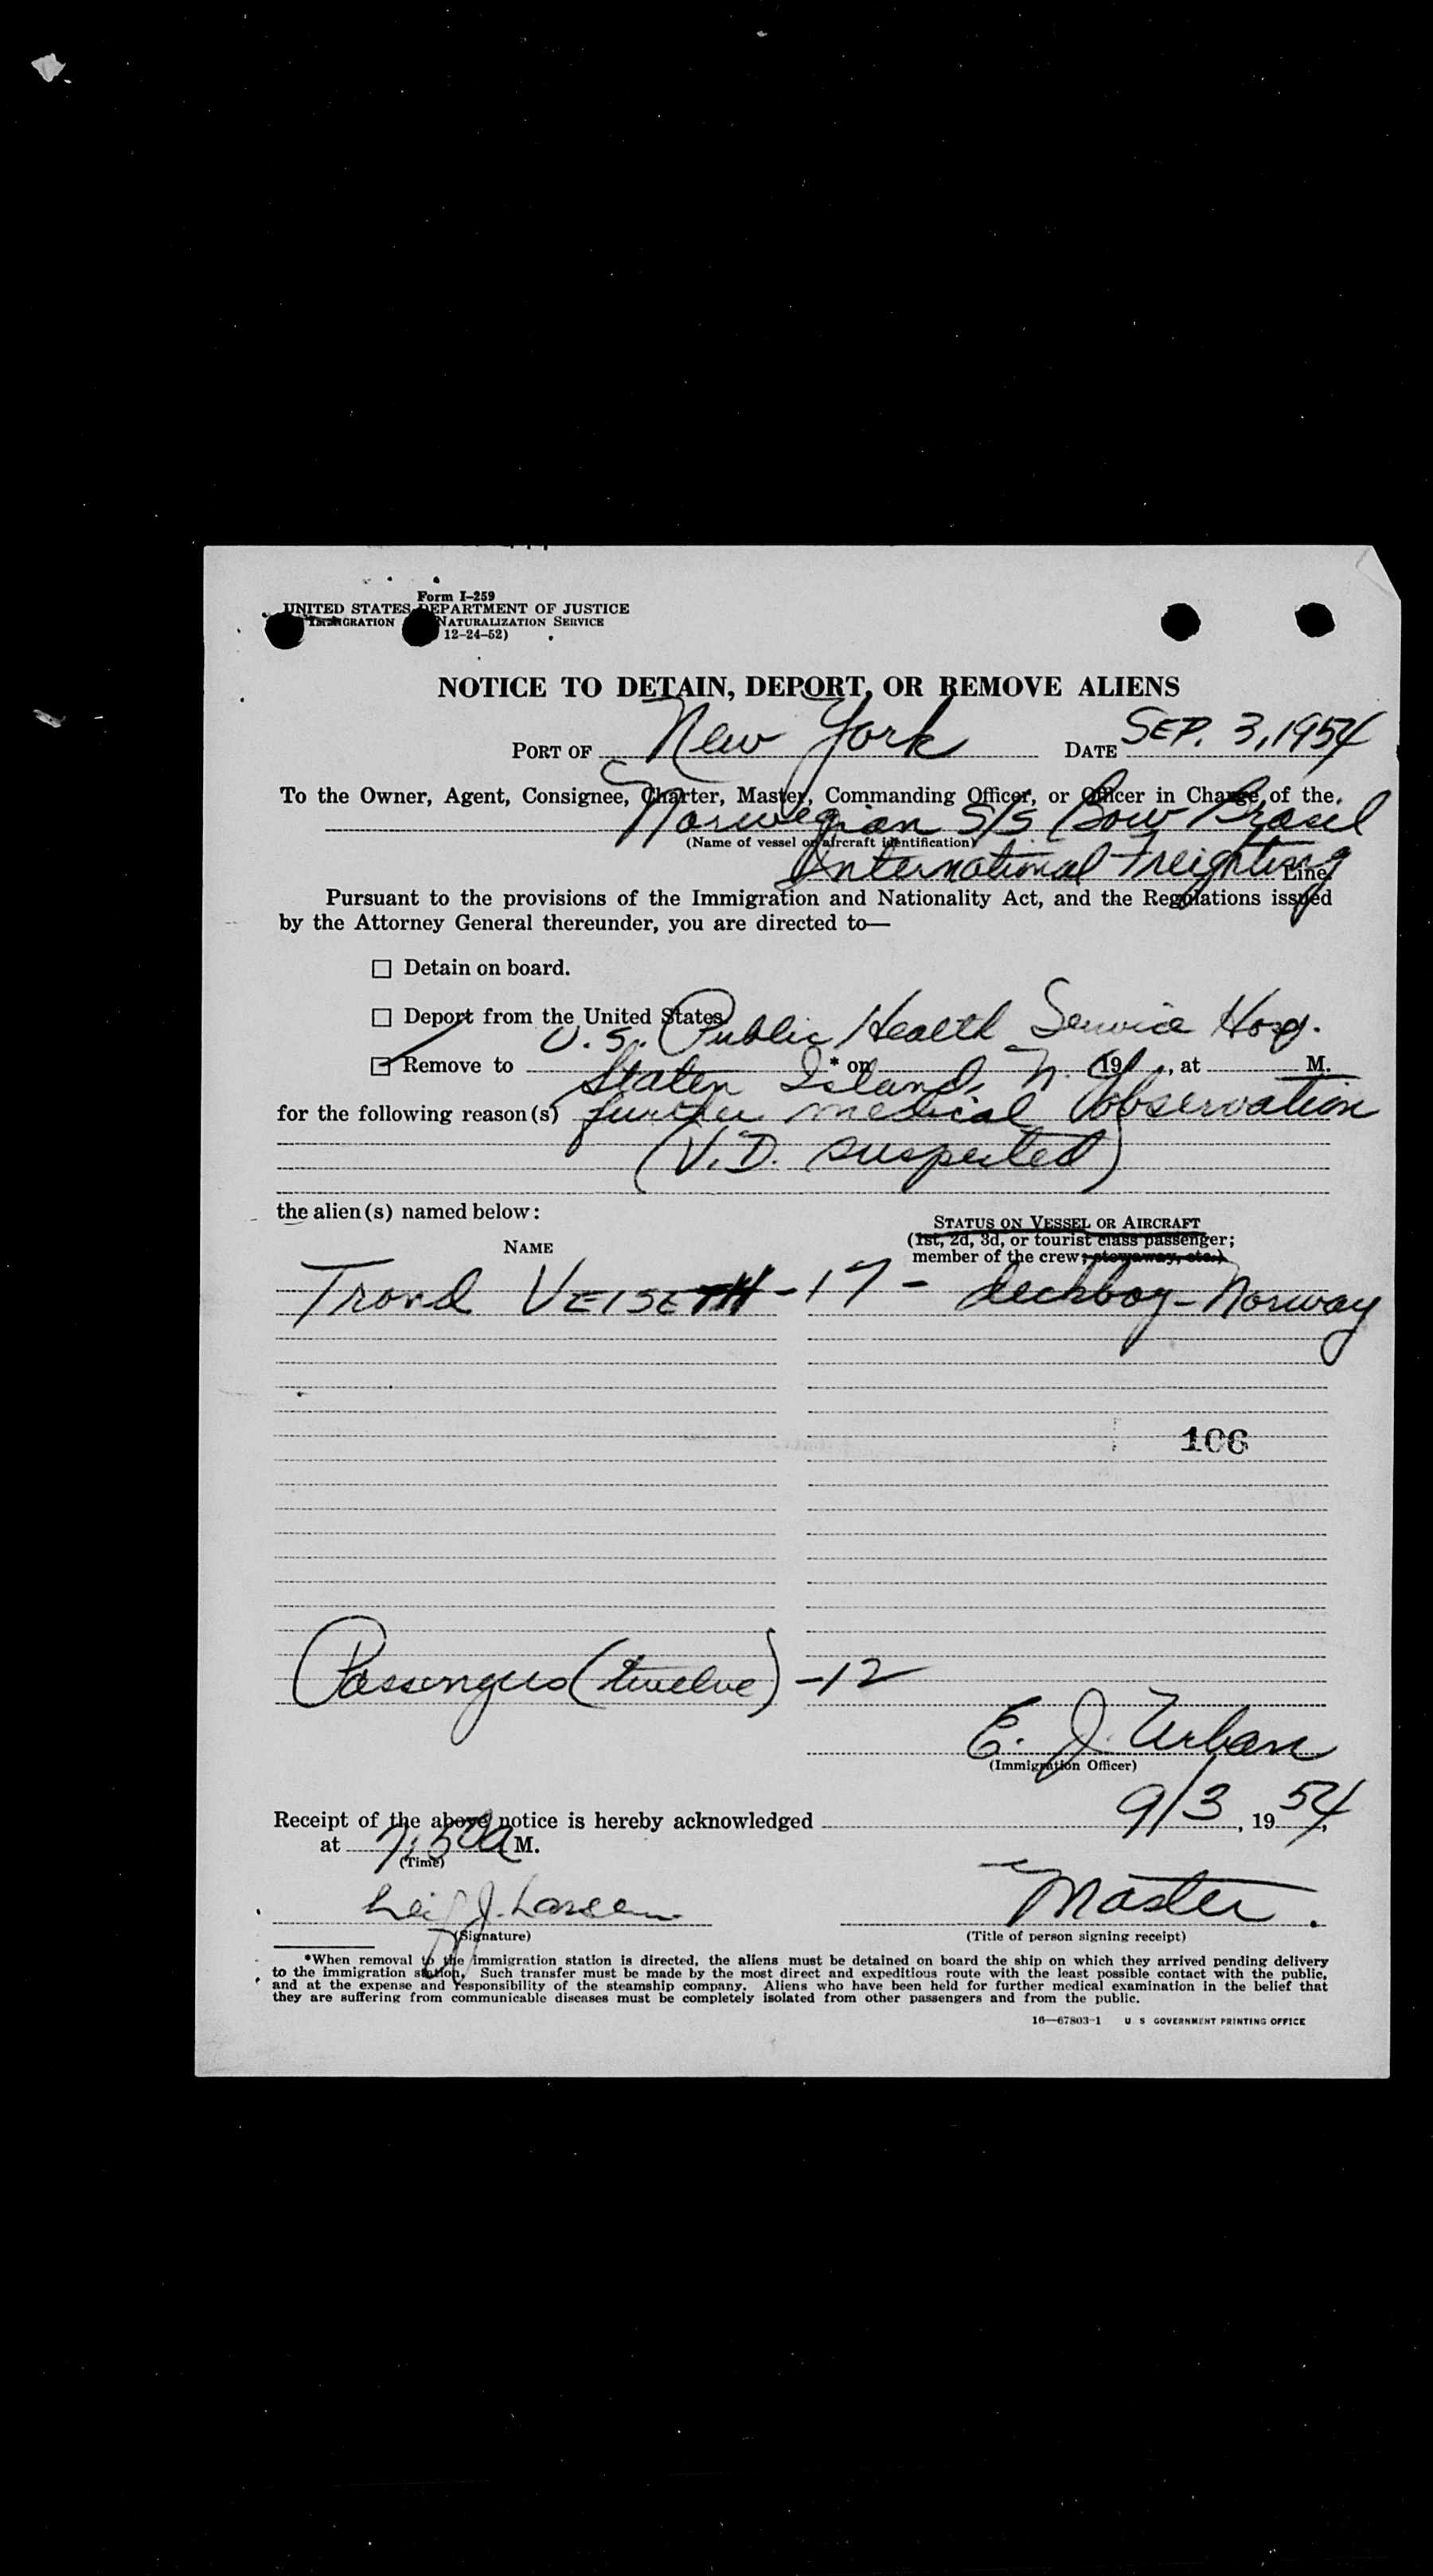 Form I-259
UNITED STATES DEPARTMENT OF JUSTICE
IMMIGRATION NATURALIZATION SERVICE
12-24-52)
NOTICE TO DETAIN, DEPORT, OR REMOVE ALIENS
PORT OF New York DATE SEP. 3, 1954
To the Owner, Agent, Consignee, Charter, Master, Commanding Officer, or Officer in Charge of the
Norwegian S/S Bow Brasil
(Name of vessel or aircraft identification)
International Freighting Line
Pursuant to the provisions of the Immigration and Nationality Act, and the Regulations issued
by the Attorney General thereunder, you are directed to—
☐ Detain on board.
☐ Deport from the United States
U.S. Public Health Service Hosp.
☐ Remove to * on 19 , at M.
Staten Island, N.Y.
for the following reason(s) further medical observation
(V.D. suspected)
the alien(s) named below:
STATUS ON VESSEL OR AIRCRAFT
(1st, 2d, 3d, or tourist class passenger;
NAME
member of the crew; stowaway, etc.)
Trond VEISETH - 17 - deckboy - Norway
106
Passengers (twelve) - 12
E. J. Urban
(Immigration Officer)
Receipt of the above notice is hereby acknowledged 9/3, 1954,
at 7:50 A M.
(Time)
Leif J. Larsen Master.
(Signature) (Title of person signing receipt)
*When removal to the immigration station is directed, the aliens must be detained on board the ship on which they arrived pending delivery
to the immigration station. Such transfer must be made by the most direct and expeditious route with the least possible contact with the public,
and at the expense and responsibility of the steamship company. Aliens who have been held for further medical examination in the belief that
they are suffering from communicable diseases must be completely isolated from other passengers and from the public.
16—67803-1 U S GOVERNMENT PRINTING OFFICE